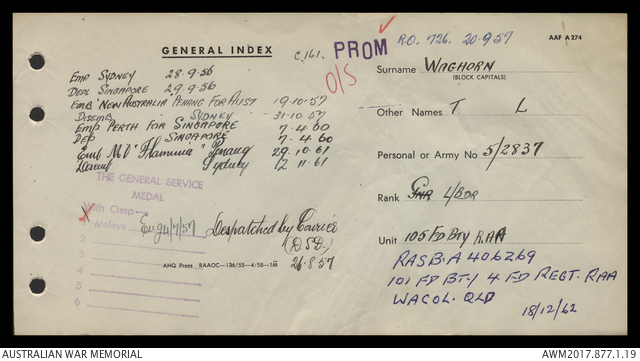 GENERAL INDEX
C.161.
PROM
R.O. 726. 20.9.57
AAF A 274
O/S
Surname WAGHORN
(BLOCK CAPITALS)
Other Names T L
Personal or Army No 5/2837
Rank GNR L/BDR
Unit 105 FD BTY RAA
RASB.A 406269
101 FD BTY 4 FD REGT. RAA
WACOL. QLD
18/12/62
EMP SYDNEY 28.9.56
DEPL SINGAPORE 29.9.56
EMB "NEW AUSTRALIA PENANG FOR AUST 19.10.57
DISEMB SYDNEY 31.10.57
EMP PERTH FOR SINGAPORE 7.4.60
DEP SINGAPORE 7.4.60
"Emb MV "Flaminia" Penang 29.10.61
Disemb Sydney 12 11.61
THE GENERAL SERVICE
MEDAL
With Clasp
x 1 Malaya
2
3
4
5
6
Despatched by Carrier
(DSD.)
26.8.57
AHQ Press RAAOC—136/55—4/55—1M
AUSTRALIAN WAR MEMORIAL
AWM2017.877.1.19